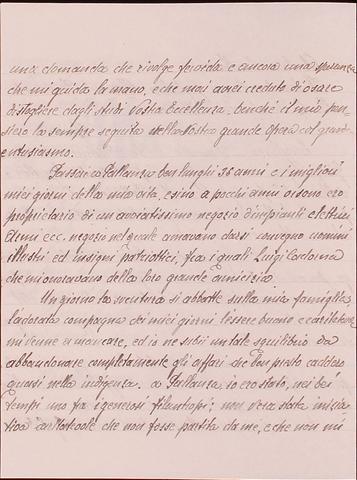 una domanda che rivolge fervida e ancora una speranza
che mi guida la mano, e che mai avrei creduto di osare
distogliere dagli studi Vostra Eccellenza, benché il mio pen-
siero la sempre seguita nella Vostra grande Opera col grande
entusiasmo.
Passai a Pallanza ben lunghi 36 anni e i migliori
miei giorni della mia vita, e sino a pochi anni or sono ero
proprietario di un avviatissimo negozio di impianti elettrici
Armi ecc. negozio nel quale amavano darsi convegno uomini
illustri ed insigni patriottici, fra i quali Luigi Cadorna
che mi onoravano della loro grande amicizia.
Un giorno la sventura si abbatté sulla mia famiglia,
l'adorata compagna dei miei giorni l'essere buono e caritatevole
mi venne a mancare, ed io ne subii un tale squilibrio da
abbandonare completamente gli affari che ben presto caddero
quasi nella indigenza. a Pallanza, io ero stato, nei bei
tempi uno fra i generosi filantropi; non v'era stata inizia-
tiva caritatevole che non fosse partita da me, e che non mi